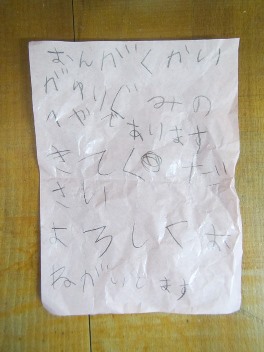 おんがくかい
がゆりぐみの
へやであります
きてくだ
さい
よろしくお
ねがいします